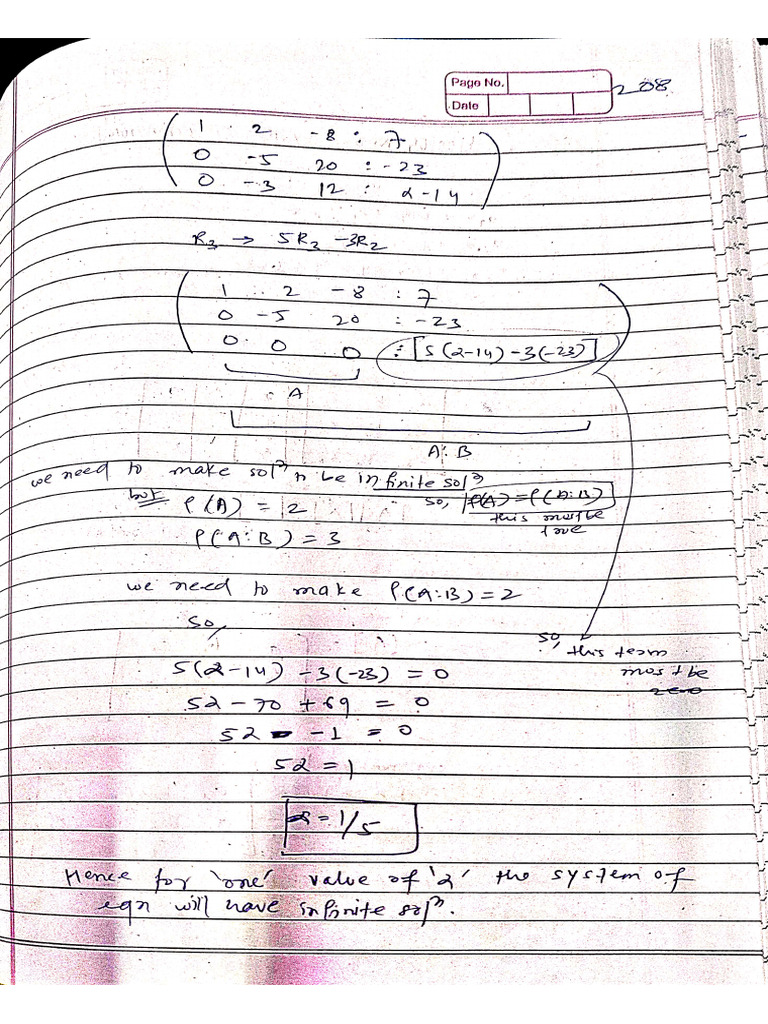 Page No.
208
Date
1 2 -8 : 7
0 -5 20 : -23
0 -3 12 : α-14
R3 → 5R3 -3R2
1 2 -8 : 7
0 -5 20 : -23
0 0 0 : [5(α-14) -3(-23)]
A
A:B
we need to make solⁿ be infinite solⁿ
but ρ(A) = 2
so, ρ(A) = ρ(A:B)
this must be
true
ρ(A:B) = 3
we need to make ρ(A:B) = 2
So,
so, this term
must be
zero
5(α-14) -3(-23) = 0
5α - 70 + 69 = 0
5α -1 = 0
5α = 1
α = 1/5
Hence for 'one' value of 'α' the system of
eqn will have infinite solⁿ.